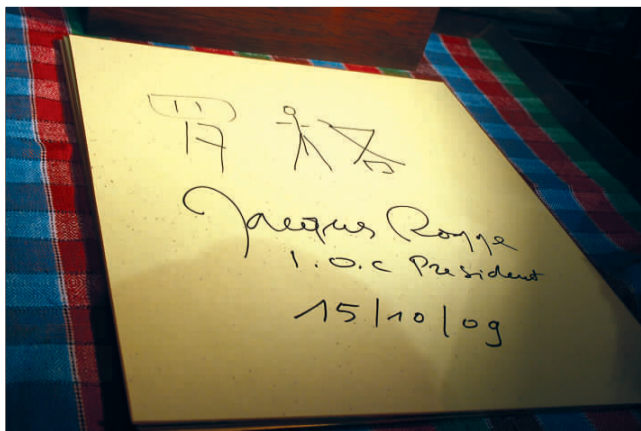 Jacques Rogge
I.O.C President
15/10/09